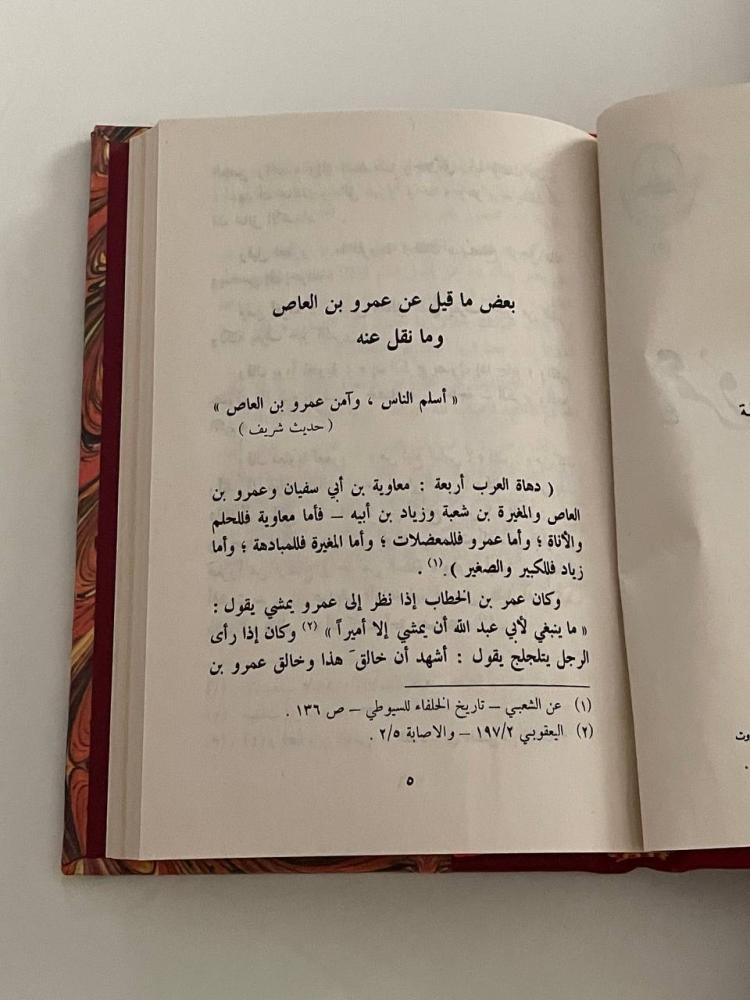 بعض ما قيل عن عمرو بن العاص
وما نقل عنه
« أسلم الناس ، وآمن عمرو بن العاص »
( حديث شريف )
( دهاة العرب أربعة : معاوية بن أبي سفيان وعمرو بن
العاص والمغيرة بن شعبة وزياد بن أبيه – فأما معاوية فللحلم
والأناة ؛ وأما عمرو فللمعضلات ؛ وأما المغيرة فللمبادهة ؛ وأما
زياد فللكبير والصغير ) (١) .
وكان عمر بن الخطاب إذا نظر إلى عمرو يمشي يقول :
« ما ينبغي لأبي عبد الله أن يمشي إلا أميراً » (٢) وكان إذا رأى
الرجل يتلجلج يقول : أشهد أن خالقَ هذا وخالق عمرو بن
(١) عن الشعبي – تاريخ الخلفاء للسيوطي – ص ١٣٦ .
(٢) اليعقوبي ١٩٧/٢ – والاصابة ٢/٥ .
٥